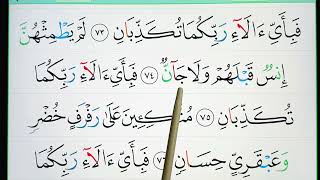 فَبِأَيِّ ءَالَآءِ رَبِّكُمَا تُكَذِّبَانِ ﴿٧٣﴾ لَمْ يَطْمِثْهُنَّ
إِنسٌ قَبْلَهُمْ وَلَا جَآنٌّ ﴿٧٤﴾ فَبِأَيِّ ءَالَآءِ رَبِّكُمَا
تُكَذِّبَانِ ﴿٧٥﴾ مُتَّكِـِٔينَ عَلَىٰ رَفْرَفٍ خُضْرٍ
وَعَبْقَرِىٍّ حِسَانٍ ﴿٧٦﴾ فَبِأَيِّ ءَالَآءِ رَبِّكُمَا